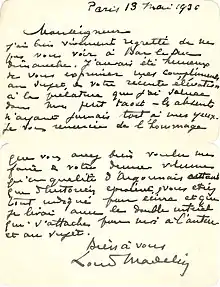 Paris 13 Mai 1936
Monseigneur
J'ai bien vivement regretté de ne
pas vous voir à Bar le Duc
Dimanche. J'aurais été heureux
de vous exprimer mes compliments
au sujet de votre récente élévation
à la prélature que j'ai saluée
dans mon petit toast - l'absent
n'ayant jamais tort à mes yeux.
Je vous remercie de l'hommage
que vous avez bien voulu me
faire de votre dernier volume
qu'en qualité d'Argonnais autant
que d'historien
tout indiqué pour écrire et que
je lirai avec le double intérêt
qui s'attache pour moi à l'auteur
et au sujet.
Bien à vous
Louis Madelin